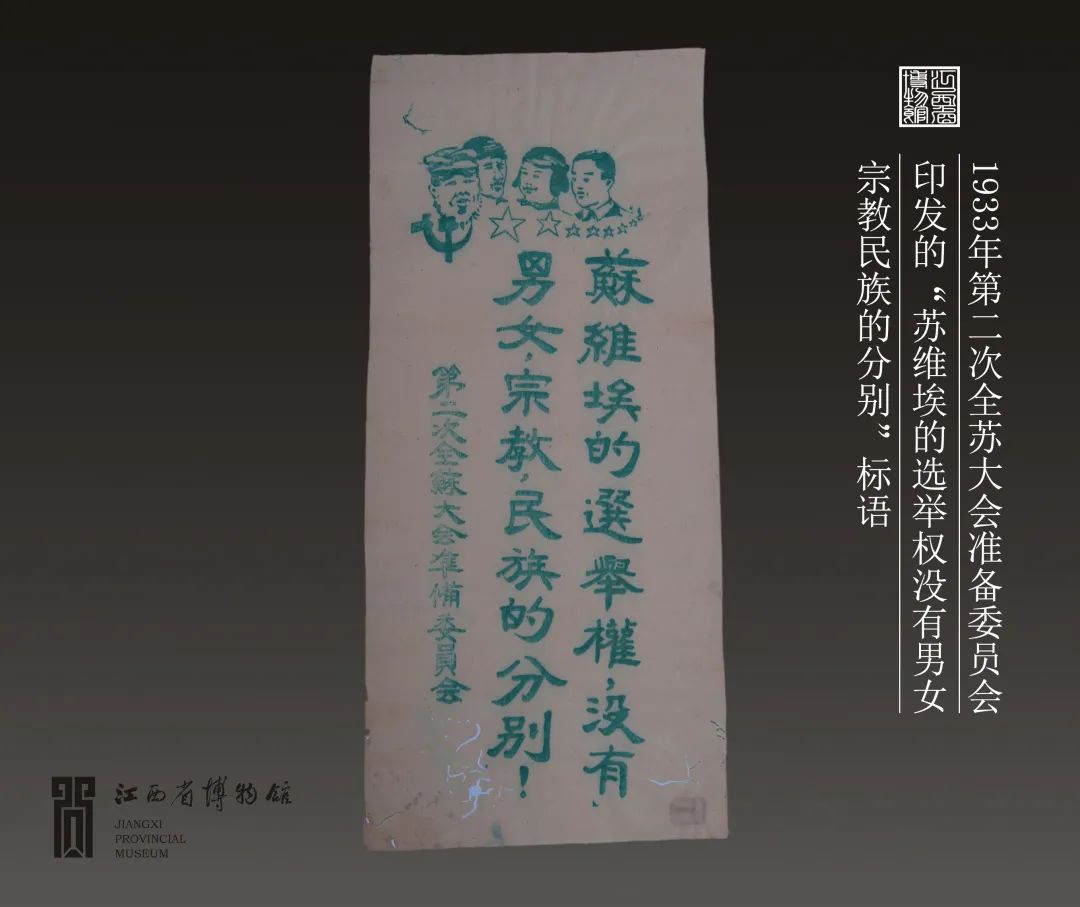 江西省博物馆
1933年第二次全苏大会准备委员会
印发的“苏维埃的选举权没有男女
宗教民族的分别”标语
蘇維埃的選舉權，没有
男女，宗教，民族的分别！
第二次全蘇大会準備委員会
江西省博物館
JIANGXI
PROVINCIAL
MUSEUM